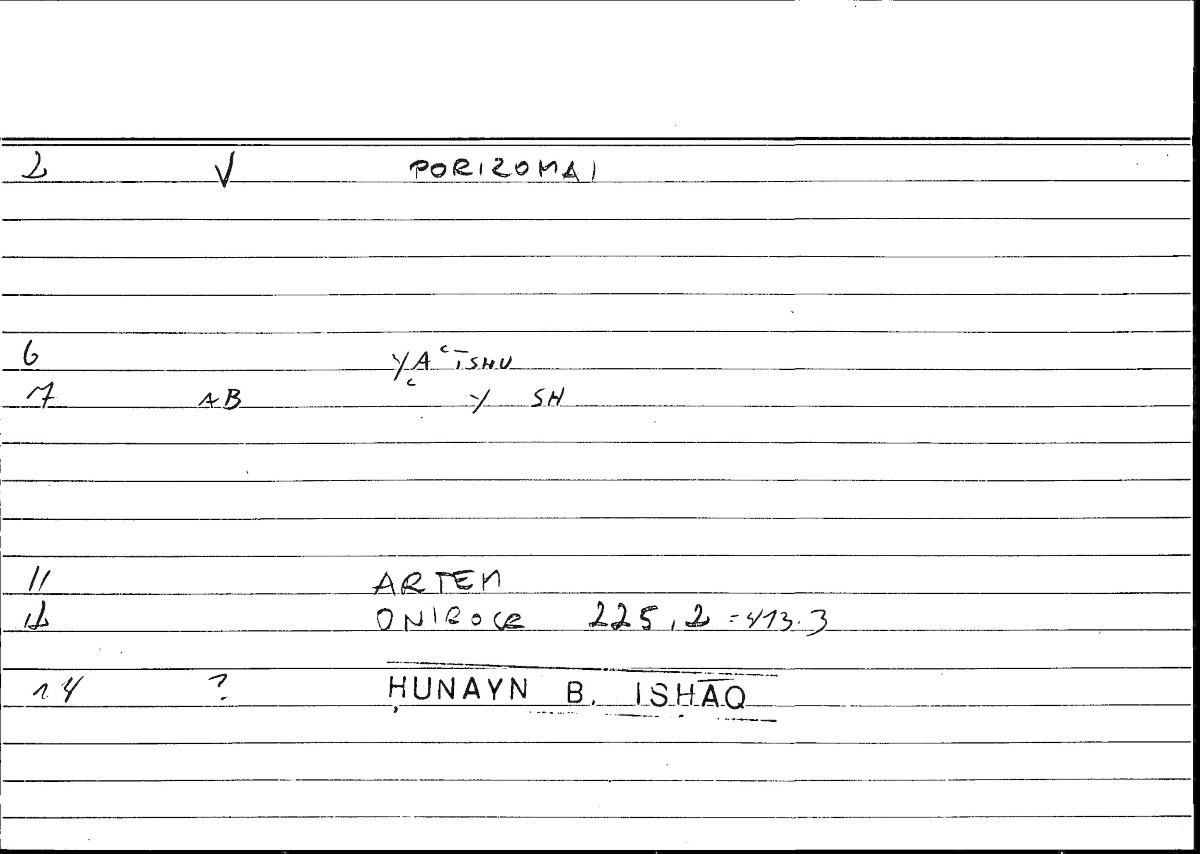 2 V PORIZOMAI
6 YAʿĪSHU
7 AB ʿY SH
11 ARTEM
12 ONIROCR 225,2 = 413.3
14 ? ḤUNAYN B. ISḤĀQ